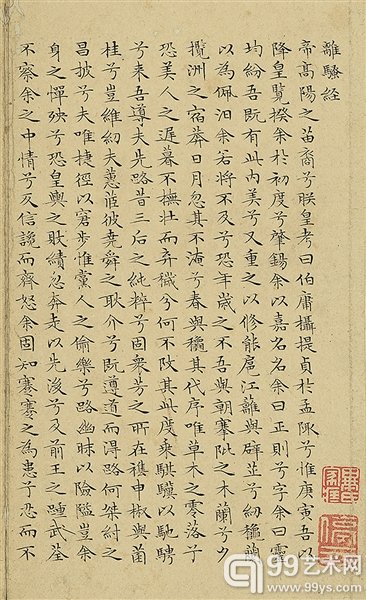 離騷經
帝高陽之苗裔兮朕皇考曰伯庸攝提貞於孟陬兮惟庚寅吾以
降皇覽揆余於初度兮肇錫余以嘉名名余曰正則兮字余曰靈
均紛吾既有此內美兮又重之以修能扈江離與辟芷兮紉穐蘭
以為佩汨余若將不及兮恐年歲之不吾與朝搴阰之木蘭兮夕
攬洲之宿莽日月忽其不淹兮春與穐其代序唯草木之零落兮
恐美人之遲暮不撫壯而棄穢兮何不改其此度乘騏驥以馳騁
兮来吾導夫先路昔三后之純粹兮固衆芳之所在襍申椒與菌
桂兮豈維紉夫蕙茝彼堯舜之耿介兮既遵道而得路何桀紂之
昌披兮夫唯捷徑以窘步惟黨人之偷樂兮路幽昧以險隘豈余
身之憚殃兮恐皇輿之敗績忽奔走以先後兮及前王之踵武荃
不察余之中情兮反信讒而齊怒余固知謇謇之為患兮忍而不
99艺术网
www.99ys.com